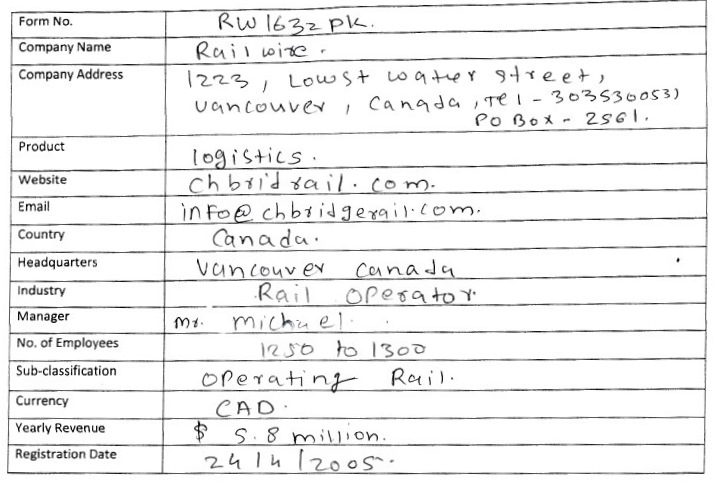 Form No. RW1632PK.
Company Name Railwire.
Company Address 1223, Lowst water street,
vancouver, Canada, Tel - 3035300531
PO Box - 2561.
Product logistics.
Website chbridrail.com.
Email info@chbridgerail.com.
Country Canada.
Headquarters vancouver canada
Industry Rail operator.
Manager Mr. Michael.
No. of Employees 1250 to 1300
Sub-classification operating Rail.
Currency CAD.
Yearly Revenue $ 5.8 million.
Registration Date 24/4/2005.